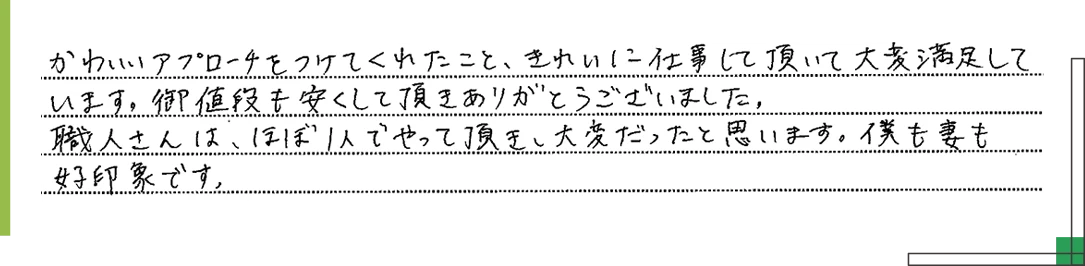 かわいいアプローチをつけてくれたこと、きれいに仕事して頂いて大変満足して
います。御値段も安くして頂きありがとうございました。
職人さんは、ほぼ1人でやって頂き、大変だったと思います。僕も妻も
好印象です。